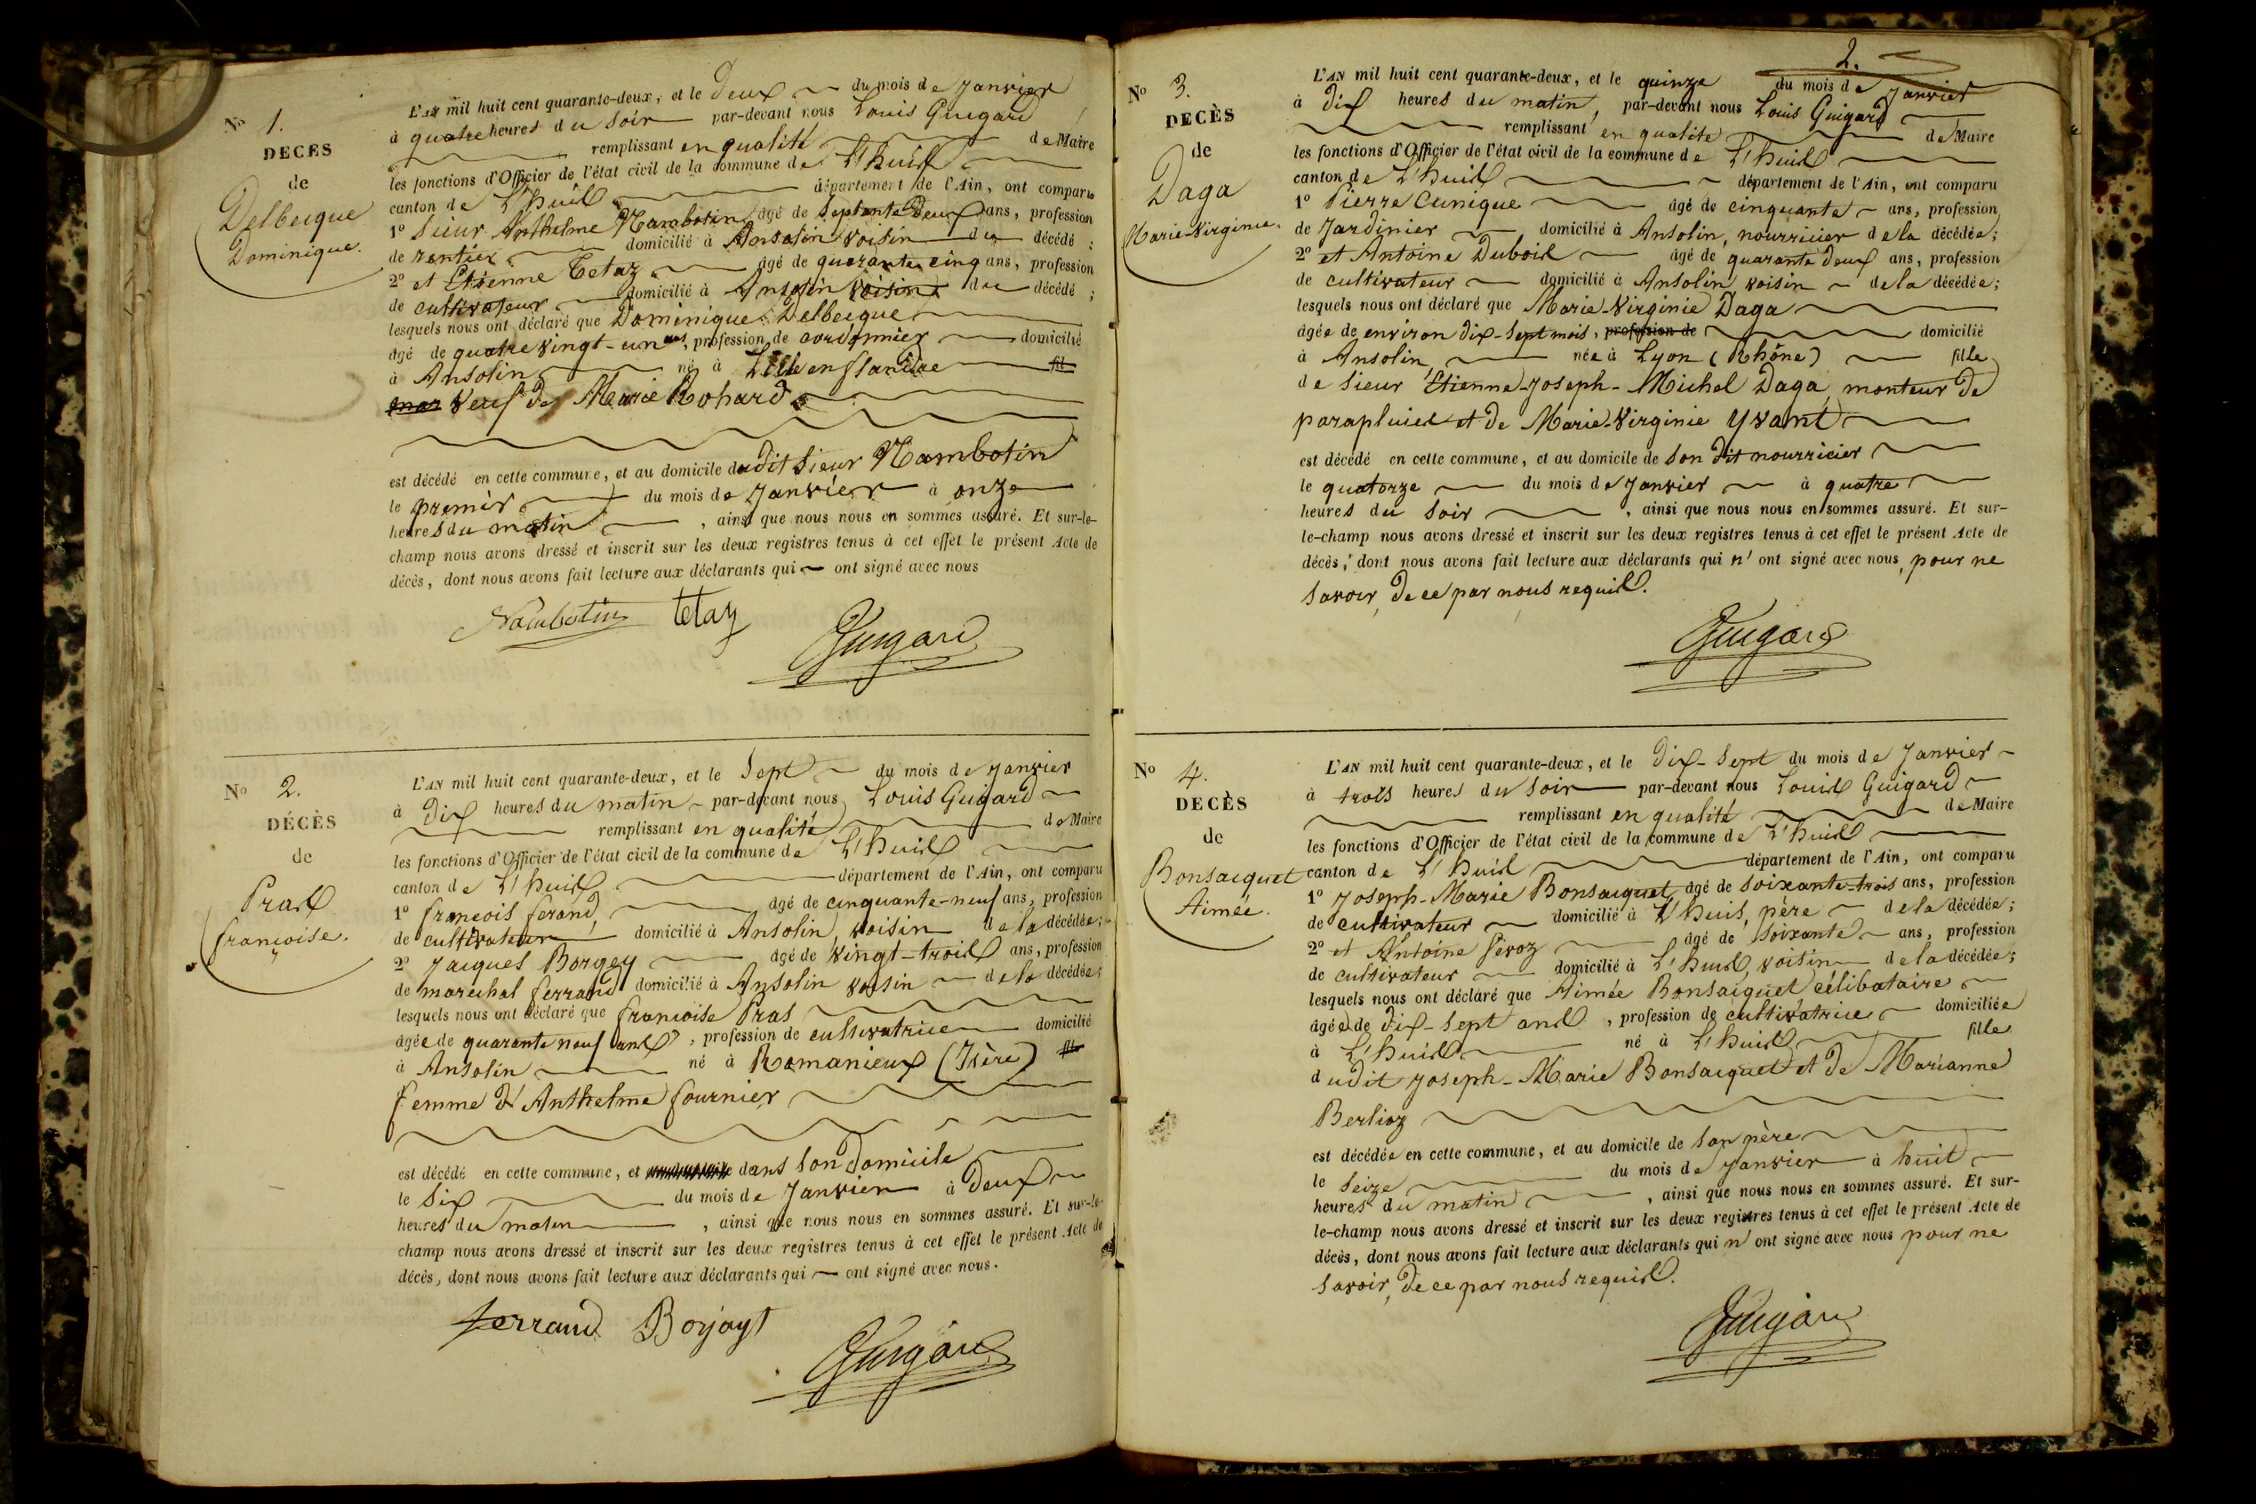 No 1.
DÉCÈS
de
Delbecque
Dominique.
L'AN mil huit cent quarante-deux, et le deux du mois de Janvier
à quatre heures du soir par-devant nous Louis Guigard
remplissant en qualité de Maire
les fonctions d'Officier de l'état civil de la commune de L'huis
canton de L'huis département de l'Ain, ont comparu
1° Sieur Anthelme Nambotin, âgé de septante deux ans, profession
de rentier domicilié à Ansolin voisin du décédé ;
2° et Etienne Tetaz âgé de quarante cinq ans, profession
de cultivateur domicilié à Ansolin voisin du décédé ;
lesquels nous ont déclaré que Dominique Delbecque
âgé de quatre vingt-un ans, profession de cordonnier domicilié
à Ansolin né à Lille en flandre fil
veuf de Marie Rohard
est décédé en cette commune, et au domicile dudit sieur Nambotin
le premier du mois de Janvier à onze
heures du matin , ainsi que nous nous en sommes assuré. Et sur-le-
champ nous avons dressé et inscrit sur les deux registres tenus à cet effet le présent Acte de
décès, dont nous avons fait lecture aux déclarants qui ont signé avec nous
Nambotin Tetaz
Guigard
No 2.
DÉCÈS
de
Pras
françoise.
L'AN mil huit cent quarante-deux, et le sept du mois de Janvier
à dix heures du matin par-devant nous Louis Guigard
remplissant en qualité de Maire
les fonctions d'Officier de l'état civil de la commune de L'huis
canton de L'huis département de l'Ain, ont comparu
1° françois ferand, âgé de cinquante-neuf ans, profession
de cultivateur domicilié à Ansolin, voisin de la décédée ;
2° Jacques Borgey âgé de vingt-trois ans, profession
de marechal ferrand domicilié à Ansolin voisin de la décédée ;
lesquels nous ont déclaré que françoise Pras
âgée de quarante neuf ans , profession de cultivatrice domicilié
à Ansolin né à Romanieux (Isère) fil
femme d'Anthelme fournier
est décédé en cette commune, et dans son domicile
le six du mois de Janvier à deux
heures du matin , ainsi que nous nous en sommes assuré. Et sur-le-
champ nous avons dressé et inscrit sur les deux registres tenus à cet effet le présent Acte de
décès, dont nous avons fait lecture aux déclarants qui ont signé avec nous.
ferrand Borjayt
Guigard
2.
No 3.
DECÈS
de
Daga
Marie-Virginie.
L'AN mil huit cent quarante-deux, et le quinze du mois de Janvier
à dix heures du matin, par-devant nous Louis Guigard
remplissant en qualité de Maire
les fonctions d'Officier de l'état civil de la commune de L'huis
canton de L'huis département de l'Ain, ont comparu
1° Pierre Cunique âgé de cinquante ans, profession
de Jardinier domicilié à Ansolin, nourricier de la décédée ;
2° et Antoine Dubois âgé de quarante deux ans, profession
de cultivateur domicilié à Ansolin voisin de la décédée ;
lesquels nous ont déclaré que Marie-Virginie Daga
âgée de environ dix-sept mois, profession de domicilié
à Ansolin née à Lyon (Rhône) fille
de sieur Etienne-Joseph-Michel Daga, monteur de
parapluies et de Marie-Virginie Yvant
est décédé en cette commune, et au domicile de son dit nourricier
le quatorze du mois de Janvier à quatre
heures du soir , ainsi que nous nous en sommes assuré. Et sur-
le-champ nous avons dressé et inscrit sur les deux registres tenus à cet effet le présent Acte de
décès, dont nous avons fait lecture aux déclarants qui n'ont signé avec nous, pour ne
savoir, de ce par nous requis.
Guigard
No 4.
DECÈS
de
Bonsacquet
Aimée.
L'AN mil huit cent quarante-deux, et le dix-sept du mois de Janvier
à trois heures du soir par-devant nous Louis Guigard
remplissant en qualité de Maire
les fonctions d'Officier de l'état civil de la commune de L'huis
canton de L'huis département de l'Ain, ont comparu
1° Joseph-Marie Bonsacquet, âgé de soixante-trois ans, profession
de cultivateur domicilié à L'huis, père de la décédée ;
2° et Antoine Pévoz âgé de soixante ans, profession
de cultivateur domicilié à L'huis, voisin de la décédée ;
lesquels nous ont déclaré que Aimée Bonsacquet célibataire
âgée de dix-sept ans , profession de cultivatrice domiciliée
à L'huis né à L'huis fille
dudit Joseph-Marie Bonsacquet et de Marianne
Berlioz
est décédée en cette commune, et au domicile de son père
le seize du mois de Janvier à huit
heures du matin , ainsi que nous nous en sommes assuré. Et sur-
le-champ nous avons dressé et inscrit sur les deux registres tenus à cet effet le présent Acte de
décès, dont nous avons fait lecture aux déclarants qui n'ont signé avec nous pour ne
savoir, de ce par nous requis.
Guigard